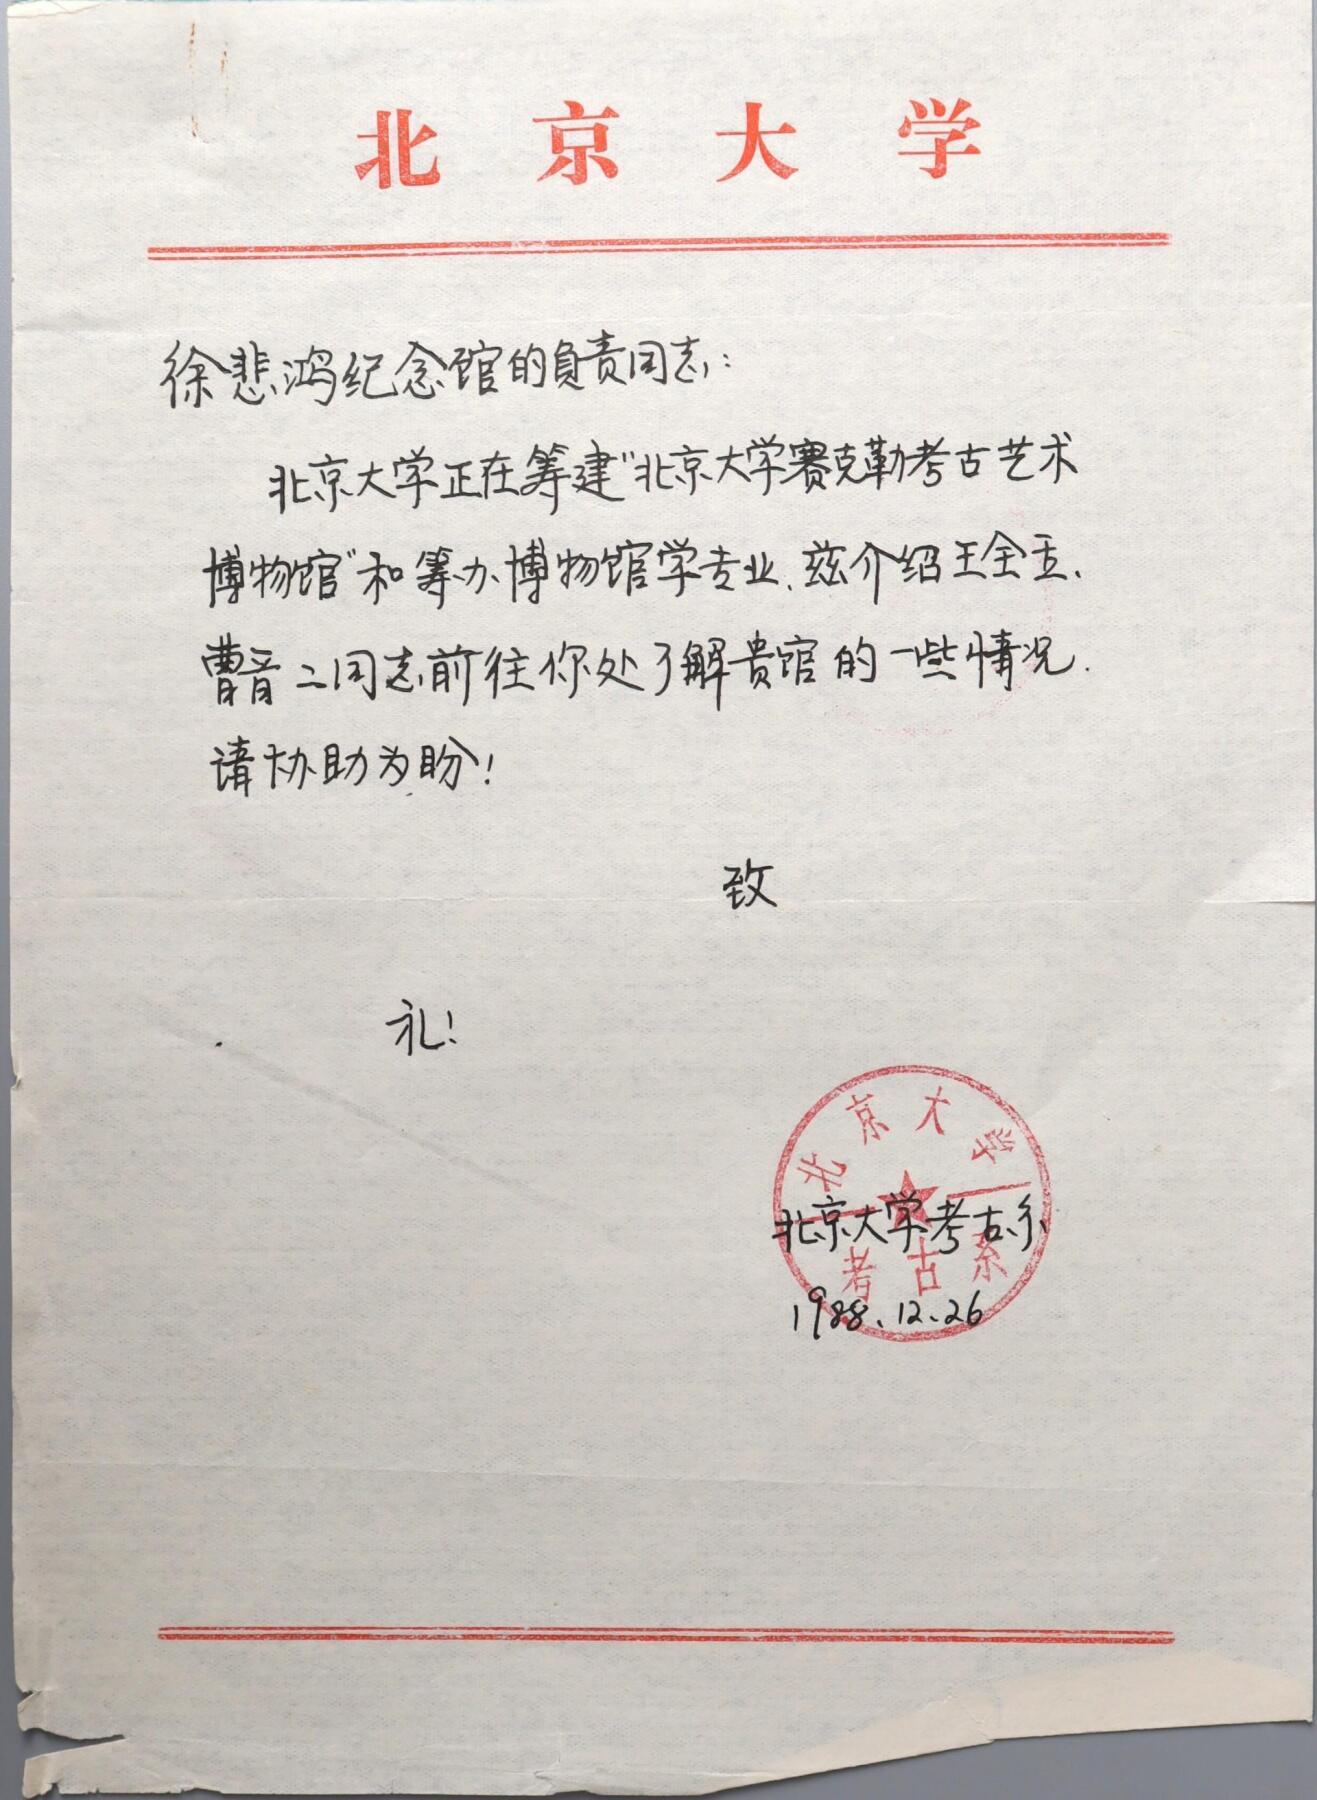 北京大学
徐悲鸿纪念馆的負责同志:
北京大学正在筹建"北京大学赛克勒考古艺术
博物馆"和筹办博物馆学专业.兹介绍王全玉、
曹音二同志前往你处了解贵馆的一些情况.
请协助为盼!
致
礼!
北京大学
考古系
北京大学考古系
1988.12.26